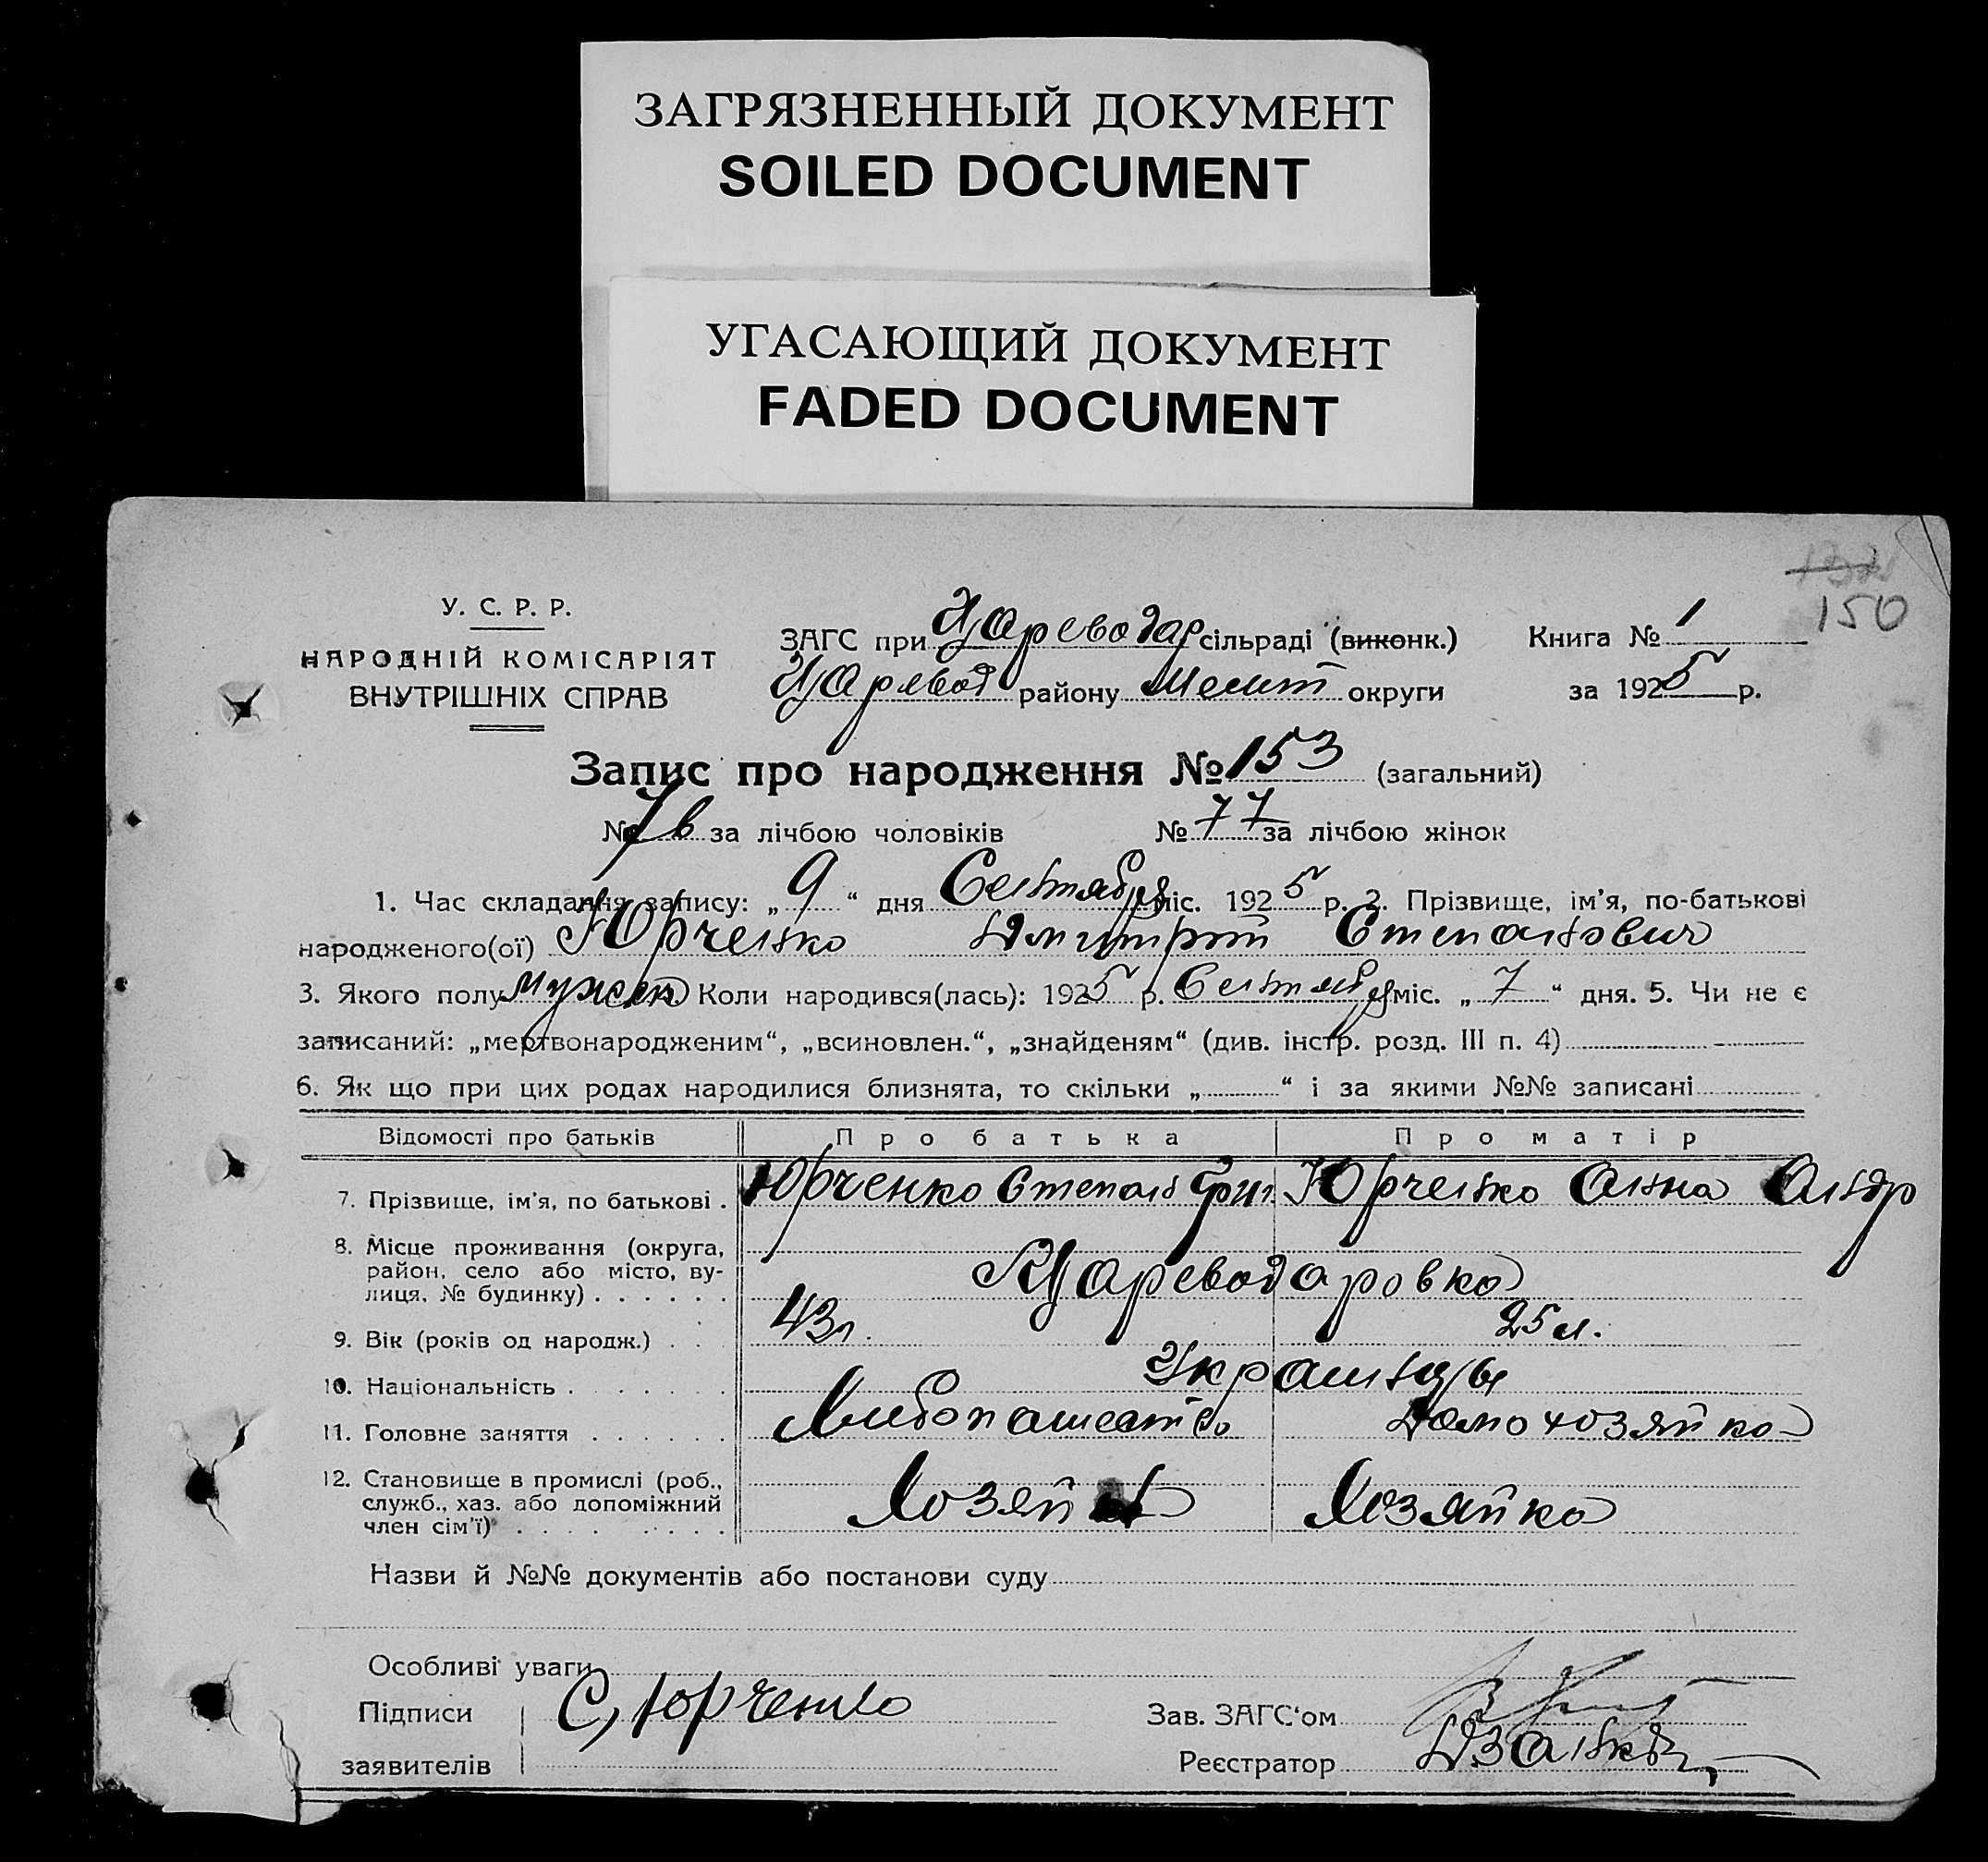 ЗАГРЯЗНЕННЫЙ ДОКУМЕНТ
SOILED DOCUMENT
УГАСАЮЩИЙ ДОКУМЕНТ
FADED DOCUMENT
150
У. С. Р. Р.
НАРОДНІЙ КОМІСАРІЯТ
ВНУТРІШНІХ СПРАВ
ЗАГС при Цареводар сільраді (виконк.) Книга № 1
Царевод району Мелит округи за 1925 р.
Запис про народження № 153 (загальний)
№ за лічбою чоловіків № 77 за лічбою жінок
1. Час складання запису: „9“ дня Сентября міс. 1925 р. 2. Прізвище, ім'я, по-батькові
народженого(ої) Юрченко Дмитрий Степанович
3. Якого полу мужск Коли народився(лась): 1925 р. Сентября міс. „7“ дня. 5. Чи не є
записаний: „мертвонародженим“, „всиновлен.“, „знайденям“ (див. інстр. розд. III п. 4)
6. Як що при цих родах народилися близнята, то скільки „ “ і за якими №№ записані
Відомості про батьків Про батька Про матір
7. Прізвище, ім'я, по батькові . Юрченко Степан Григ. Юрченко Анна Андр
8. Місце проживання (округа,
район, село або місто, ву-
лиця, № будинку) . . . . . . Цареводаровка
9. Вік (років од народж.) . . . 43 г. 25 л.
10. Національність . . . . . . . Украинцы
11. Головне заняття . . . . . . Хлебопашество Домохозяйка
12. Становище в промислі (роб.,
служб., хаз. або допоміжний
член сім'ї) . . . . . . . . . Хозяин Хозяйка
Назви й №№ документів або постанови суду
Особливі уваги
Підписи С, Юрченко Зав. ЗАГС'ом
заявителів Реєстратор